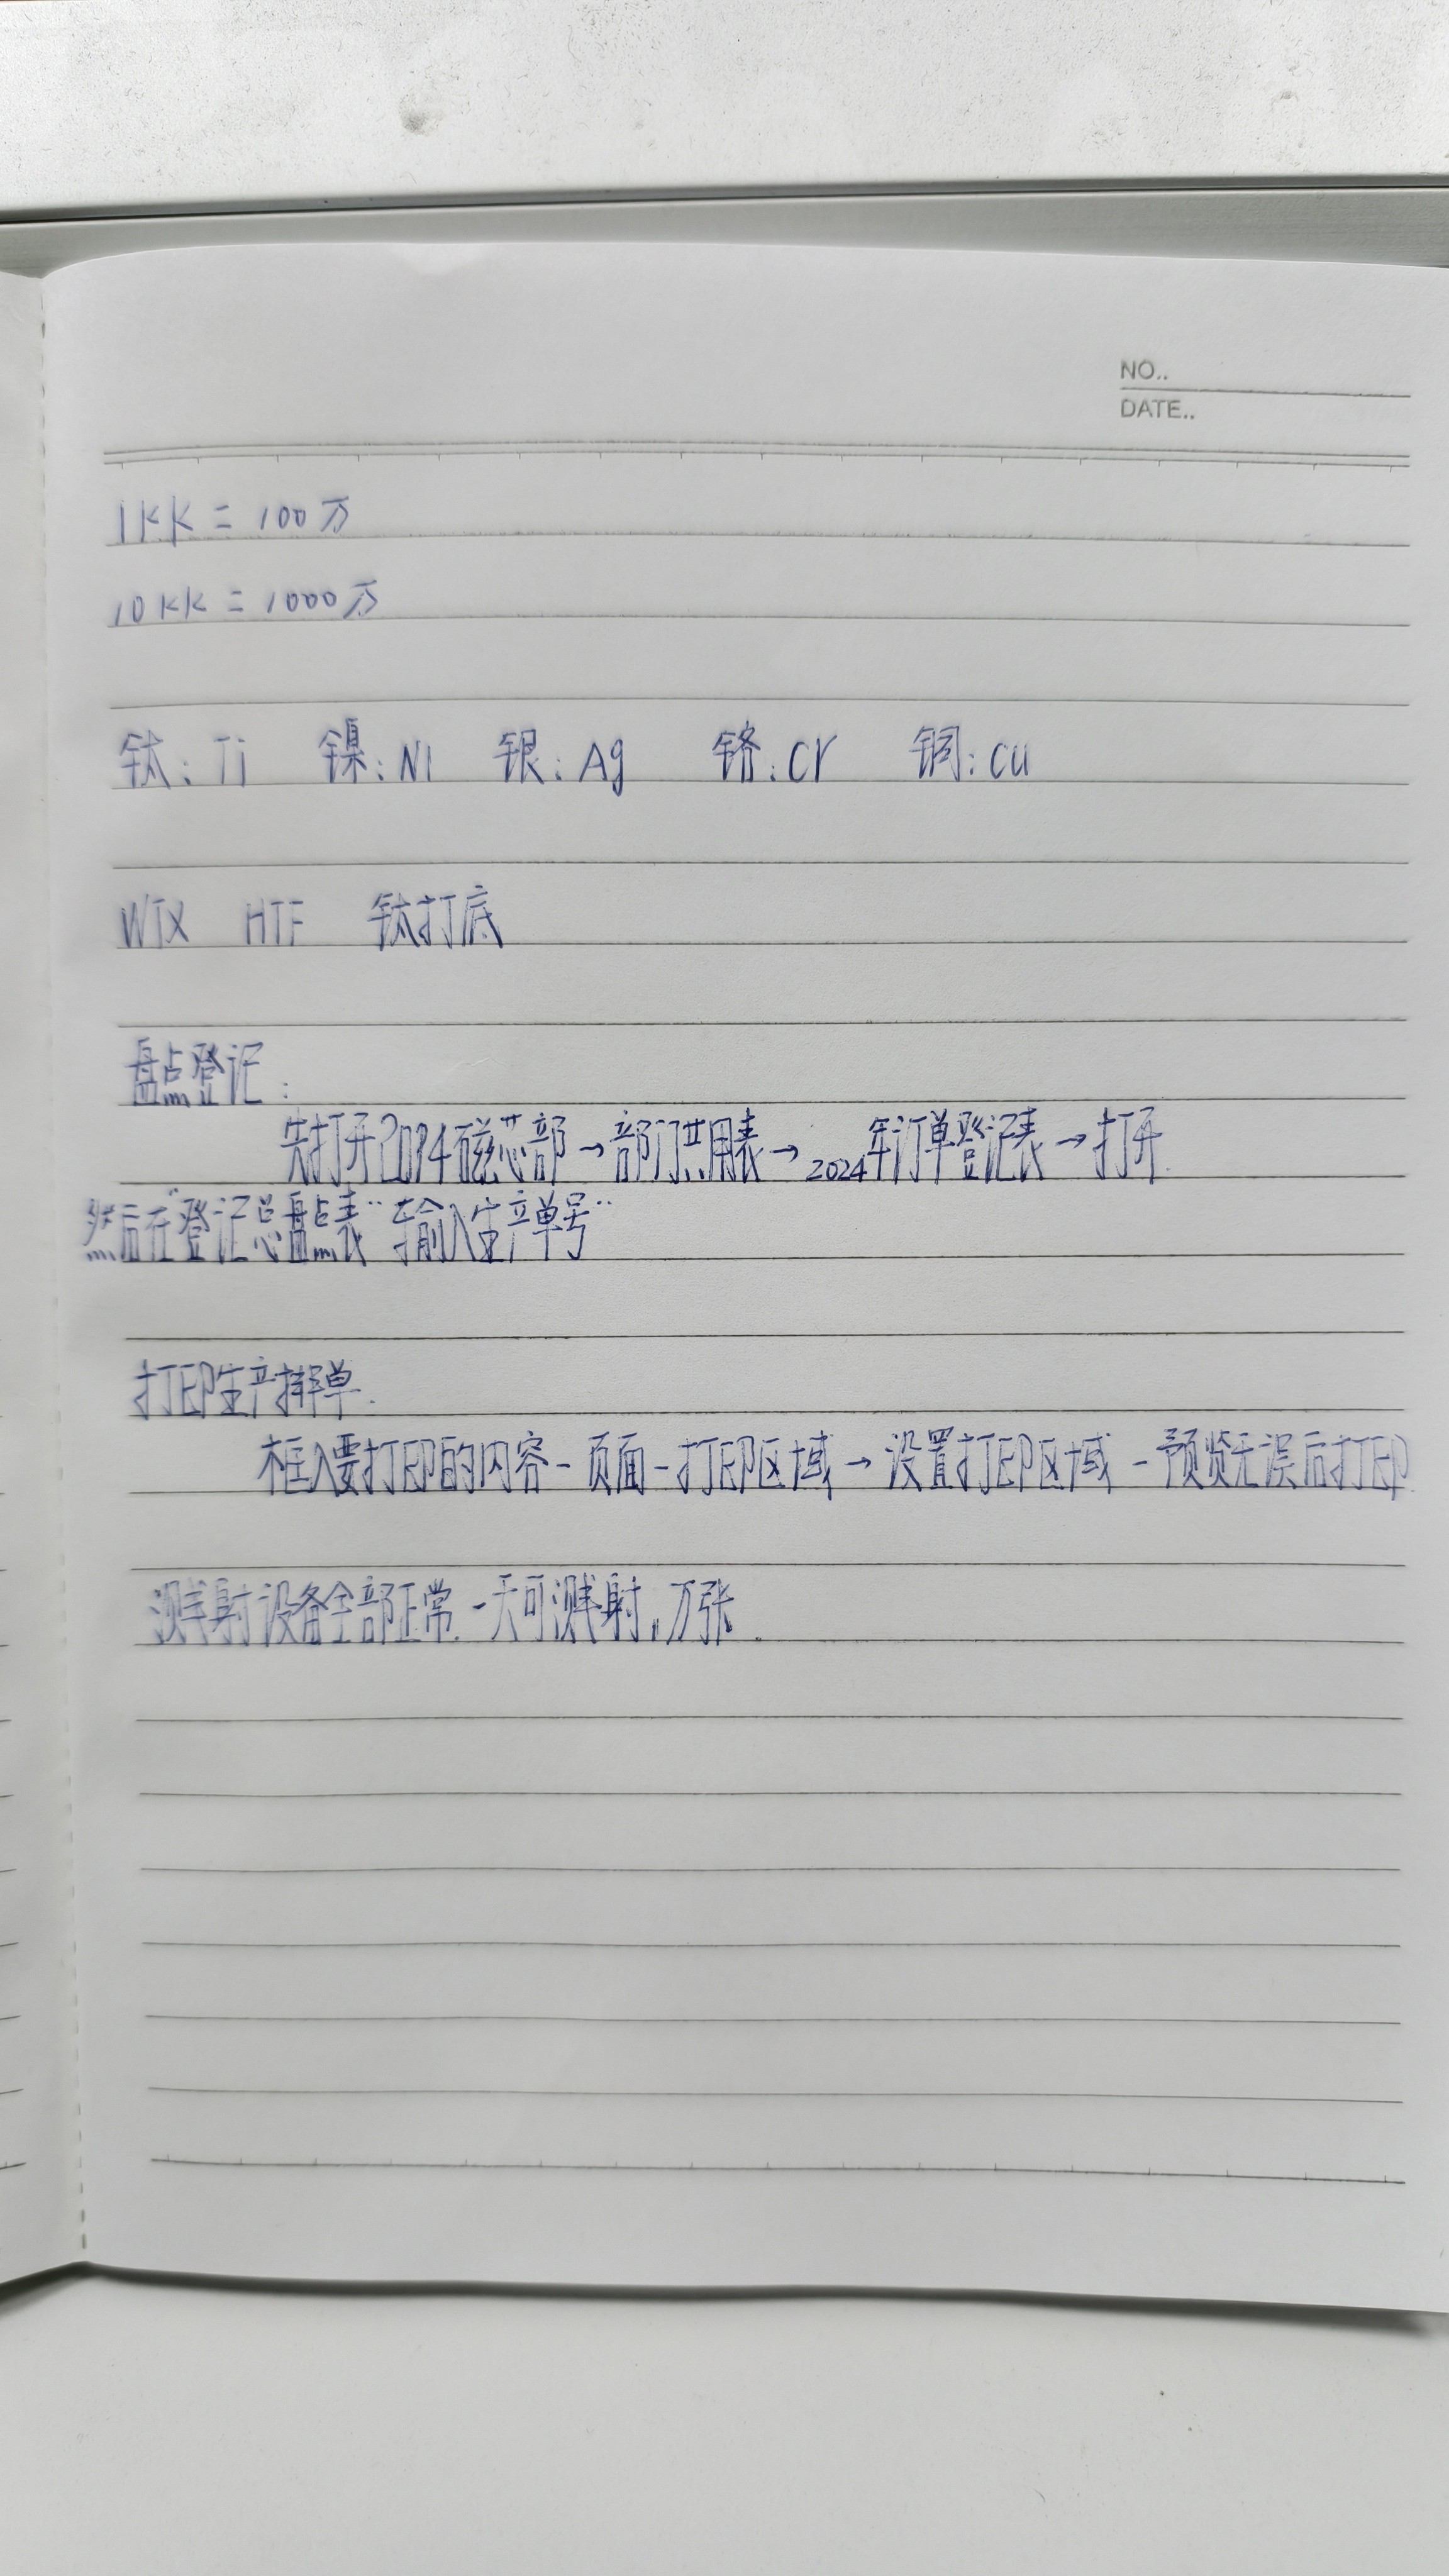 NO..
DATE..
1KK = 100万
10KK = 1000万
钛: Ti 镍: Ni 银: Ag 铬: Cr 铜: Cu
WTX HTF 钛打底
盘点登记:
先打开2024磁芯部→部门共用表→2024年订单登记表→打开.
然后在"登记总盘点表"输入生产单号"
打印生产排单.
框入要打印的内容-页面-打印区域→设置打印区域-预览无误后打印.
溅射设备全部正常.一天可溅射 万张.